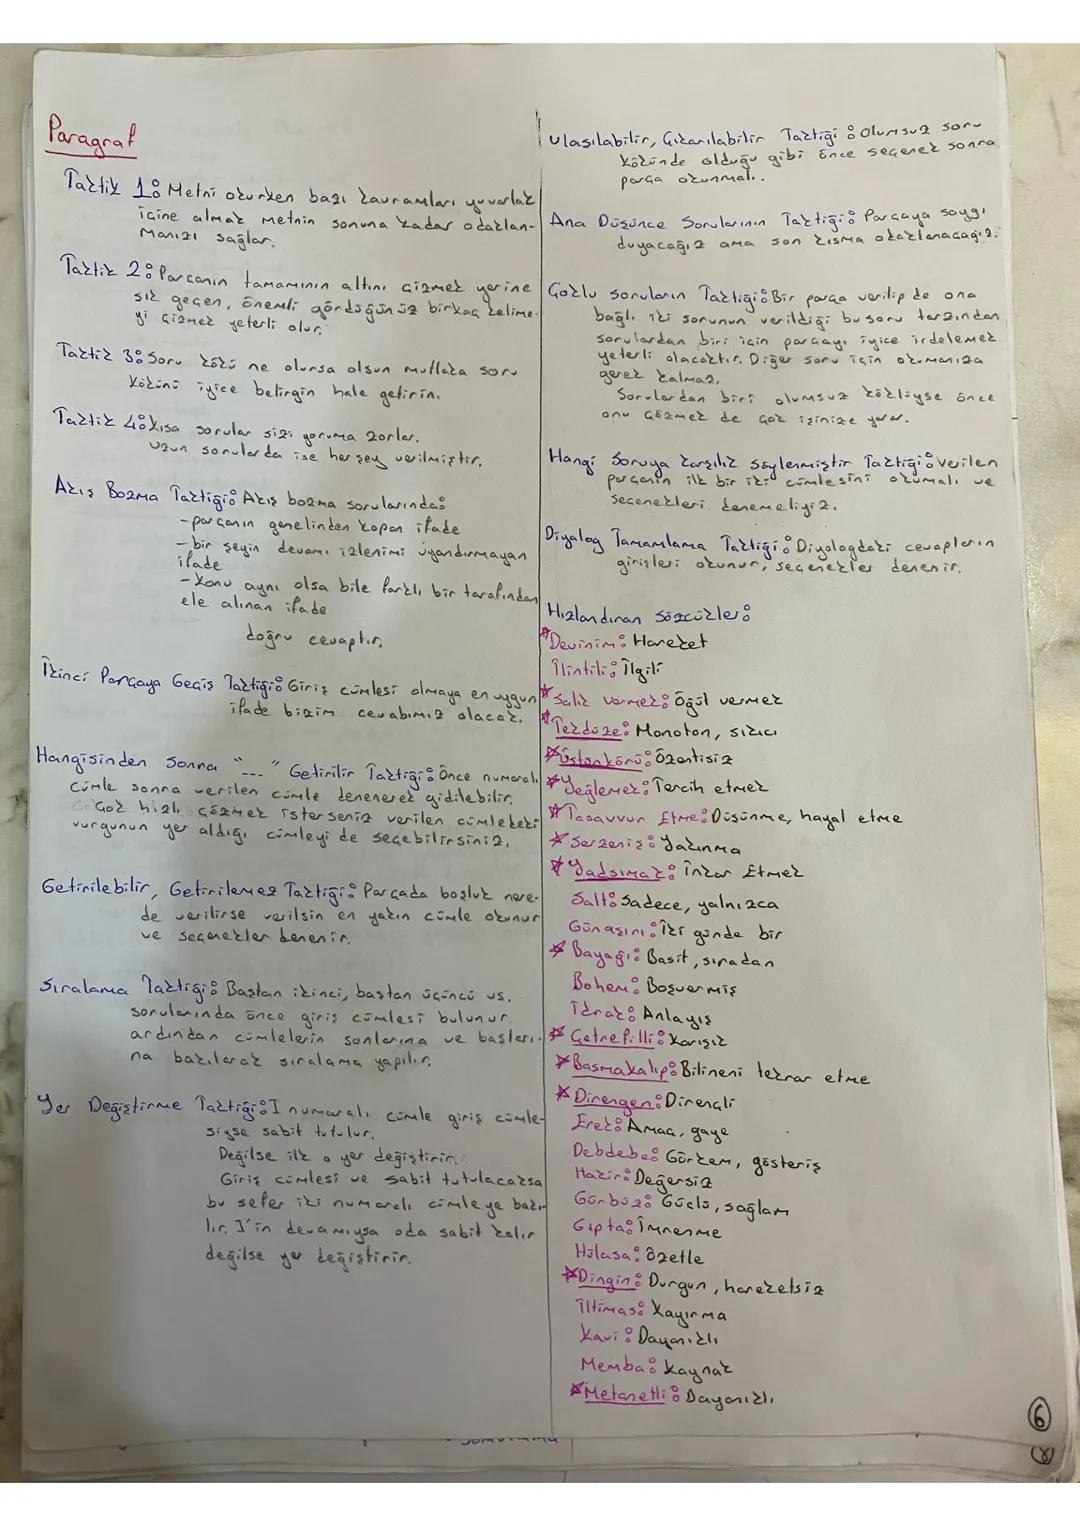 Paragraf
Taktik 1: Metni okurken bazı kavramları yuvarlak
içine almak metnin sonuna kadar odaklan-
manızı sağlar.
Taktik 2: Parçanın tamamının altını çizmek yerine
sık geçen, önemli gördüğünüz birkaç kelime-
yi çizmek yeterli olur.
Taktik 3: Soru kökü ne olursa olsun mutlaka soru
kökünü iyice belirgin hale getirin.
Taktik 4: Kısa sorular sizi yoruma zorlar.
Uzun sorularda ise her şey verilmiştir.
Akış Bozma Taktiği: Akış bozma sorularında:
-parçanın genelinden kopan ifade
-bir şeyin devamı izlenimi uyandırmayan
ifade
-Konu aynı olsa bile farklı bir tarafından
ele alınan ifade
doğru cevaptır.
İkinci Parçaya Geçiş Taktiği: Giriş cümlesi olmaya en uygun
ifade bizim cevabımız olacak.
Hangisinden Sonra "---" Getirilir Taktiği: Önce numaralı
cümle sonra verilen cümle denenerek gidilebilir.
Çok hızlı çözmek isterseniz verilen cümledeki
vurgunun yer aldığı cümleyi de seçebilirsiniz.
Getirilebilir, Getirilemez Taktiği: Parçada boşluk nere-
de verilirse verilsin en yakın cümle okunur
ve seçenekler denenir.
Sıralama Taktiği: Baştan ikinci, baştan üçüncü vs.
sorularında önce giriş cümlesi bulunur,
ardından cümlelerin sonlarına ve başları-
na bakılarak sıralama yapılır.
Yer Değiştirme Taktiği: I numaralı cümle giriş cümle-
siyse sabit tutulur.
Değilse ilk o yer değiştirir.
Giriş cümlesi ve sabit tutulacaksa
bu sefer iki numaralı cümleye bakı-
lır. I'in devamıysa oda sabit kalır
değilse yer değiştirir.
Ulaşılabilir, Çıkarılabilir Taktiği: Olumsuz soru
kökünde olduğu gibi önce seçenek sonra
parça okunmalı.
Ana Düşünce Sorularının Taktiği: Parçaya saygı
duyacağız ama son kısma odaklanacağız.
Çoklu soruların Taktiği: Bir parça verilip de ona
bağlı iki sorunun verildiği bu soru tarzından
sorulardan biri için parçayı iyice irdelemek
yeterli olacaktır. Diğer soru için okumanıza
gerek kalmaz.
Sorulardan biri olumsuz köklüyse önce
onu çözmek de çok işinize yarar.
Hangi Soruya Karşılık Söylenmiştir Taktiği: Verilen
parçanın ilk bir iki cümlesini okumalı ve
seçenekleri denemeliyiz.
Diyalog Tamamlama Taktiği: Diyologdaki cevapların
girişleri okunur, seçenekler denenir.
Hızlandıran Sözcükler:
Devinim: Hareket
İlintili: İlgili
Salık vermek: Öğüt vermek
Tekdüze: Monoton, sıkıcı
Üstünkörü: Özentisiz
Yeğlemek: Tercih etmek
Tasavvur Etme: Düşünme, hayal etme
Serzeniş: Yakınma
Yadsımak: İnkar Etmek
Salt: Sadece, yalnızca
Günaşırı: İki günde bir
Bayağı: Basit, sıradan
Bohem: Boşvermiş
İdrak: Anlayış
Çetrefilli: Karışık
Basmakalıp: Bilineni tekrar etme
Direngen: Dirençli
Erek: Amaç, gaye
Debdebe: Görkem, gösteriş
Hakir: Değersiz
Gürbüz: Güçlü, sağlam
Gıpta: İmrenme
Hülasa: Özetle
Dingin: Durgun, hareketsiz
İltimas: Kayırma
Kavi: Dayanıklı
Memba: Kaynak
Metanetli: Dayanıklı
6
8